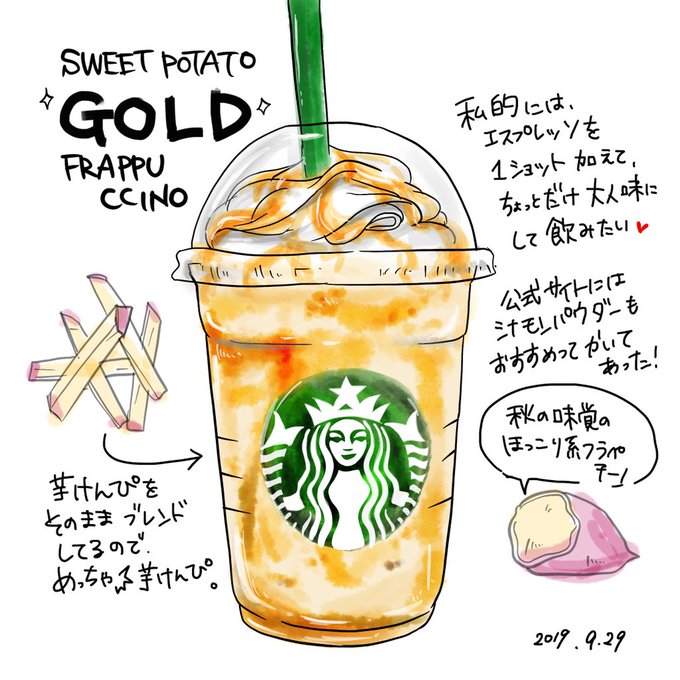 SWEET POTATO
GOLD
FRAPPU
CCINO
私的には、
エスプレッソを
1ショット 加えて、
ちょっとだけ 大人味に
して 飲みたい
公式サイトには
シナモンパウダーも
おすすめって かいて
あった!
秋の味覚の
ほっこり系フラペ
チーノ
芋けんぴを
そのまま ブレンド
してるので、
めっちゃ芋けんぴ。
2019.9.29